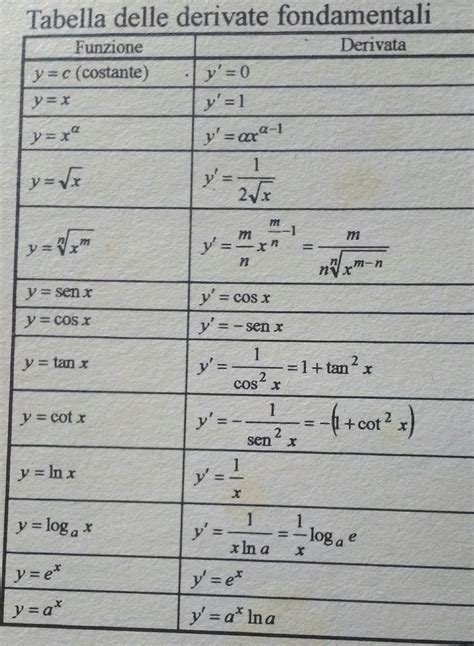 Tabella delle derivate fondamentali
Funzione Derivata
y = c (costante) y' = 0
y = x y' = 1
y = x^α y' = αx^(α−1)
y = √x y' = 1/(2√x)
y = ⁿ√(x^m) y' = (m/n) x^(m/n −1) = m/(n ⁿ√(x^(m−n)))
y = sen x y' = cos x
y = cos x y' = − sen x
y = tan x y' = 1/(cos² x) = 1 + tan² x
y = cot x y' = − 1/(sen² x) = −(1 + cot² x)
y = ln x y' = 1/x
y = logₐ x y' = 1/(x ln a) = (1/x) logₐ e
y = e^x y' = e^x
y = a^x y' = a^x ln a